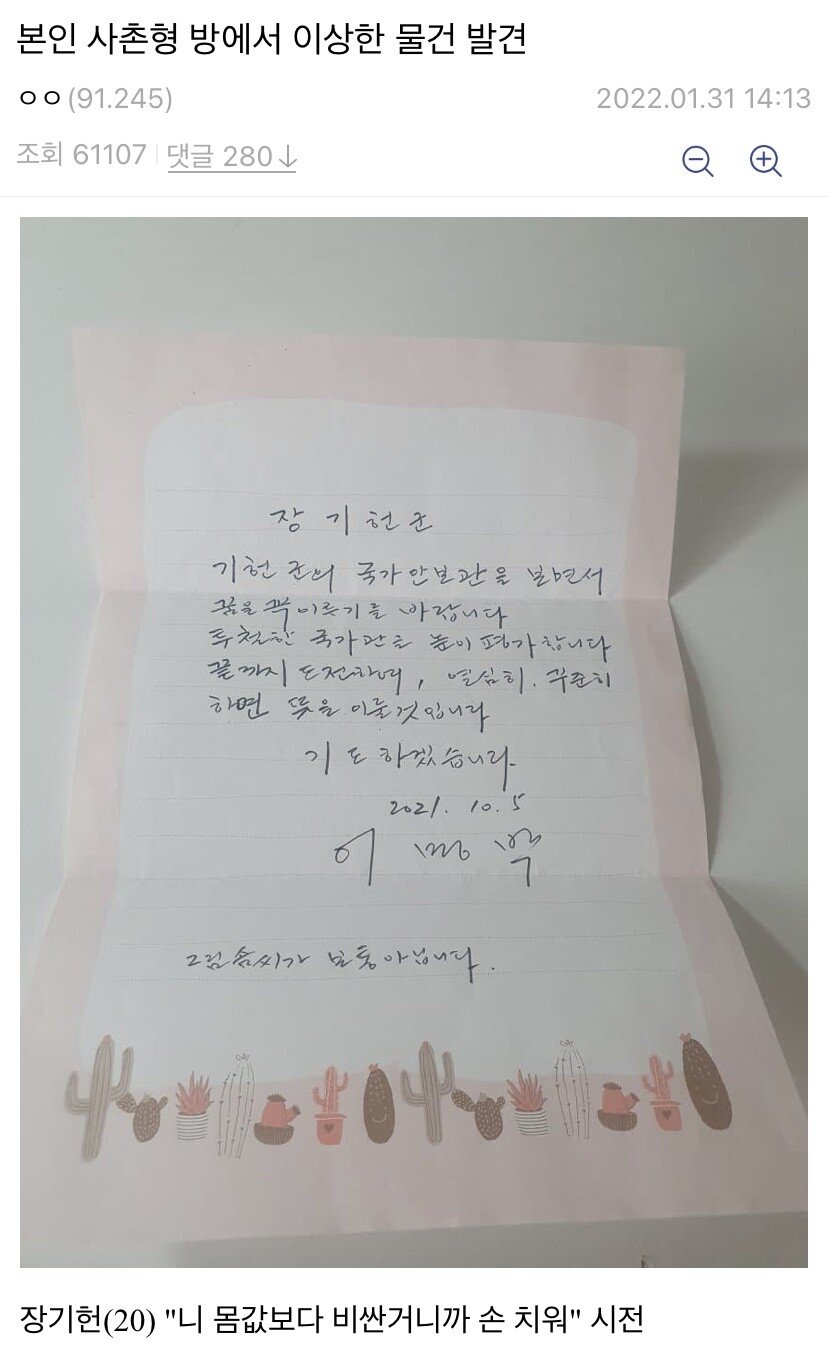 본인 사촌형 방에서 이상한 물건 발견
ㅇㅇ(91.245)
2022.01.31 14:13
조회 61107
댓글 280↓
장 기 헌 군
기헌 군의 국가안보관을 보면서
꿈을 꼭 이루기를 바랍니다
투철한 국가관을 높이 평가합니다
끝까지 도전하며, 열심히. 꾸준히
하면 뜻을 이룰것입니다
기도하겠습니다.
2021. 10. 5
이 명 박
그림솜씨가 보통아닙니다.
장기헌(20) "니 몸값보다 비싼거니까 손 치워" 시전